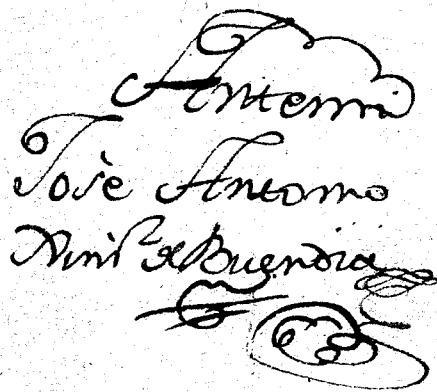 Antemi
Josè Antonio
de Buendia